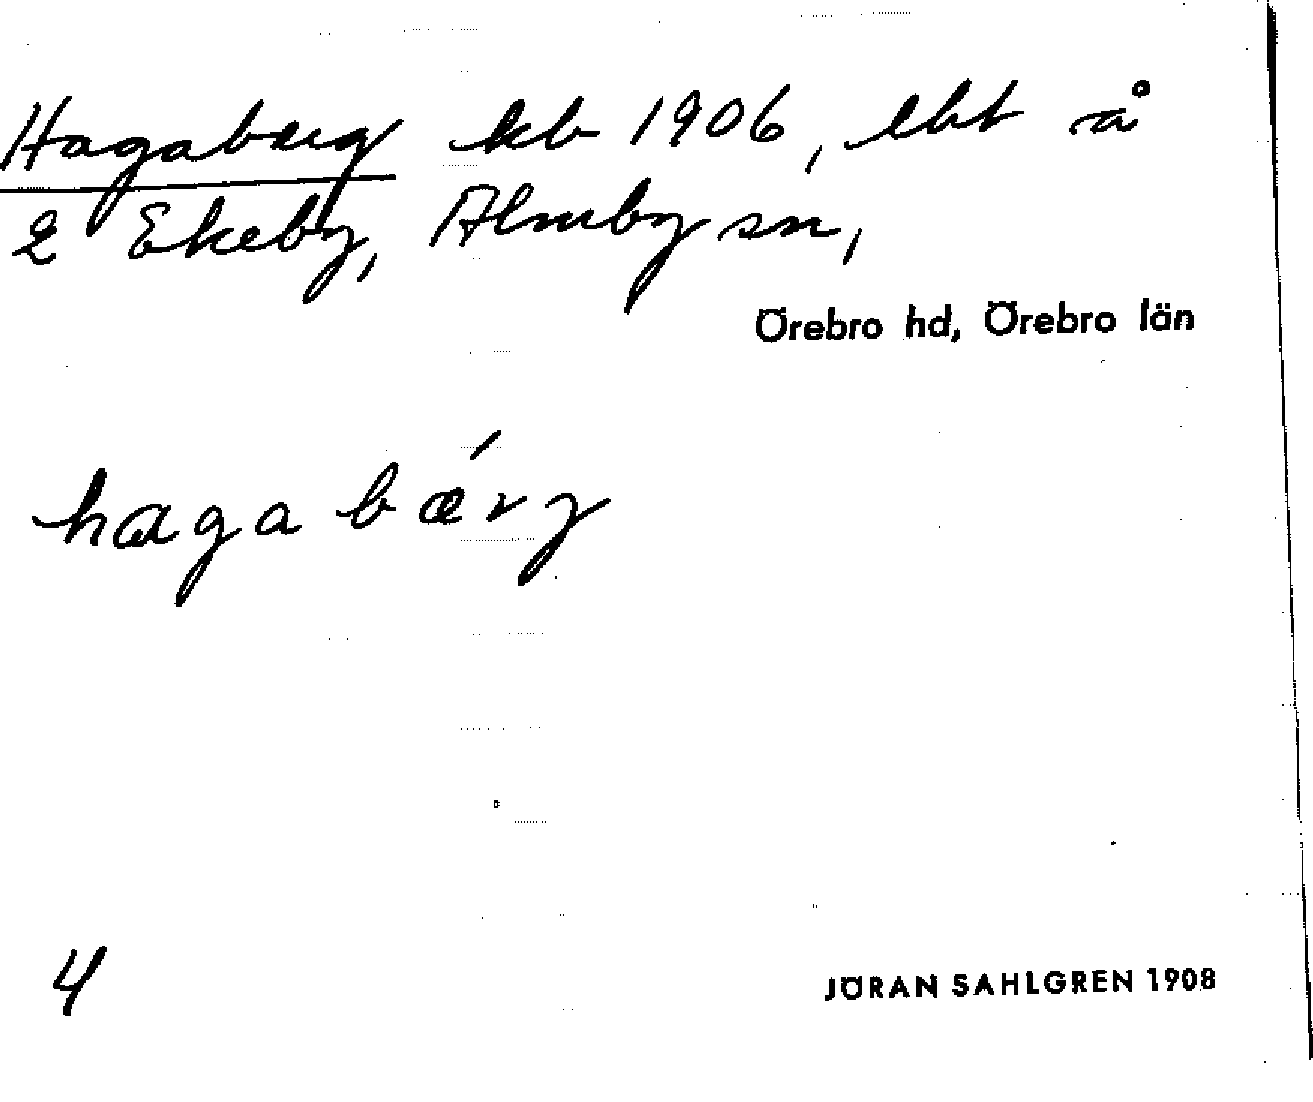 Hagaberg kb 1906, lht å
2 Ekeby, Almby sn,
Örebro hd, Örebro län
hagabǽrg
4
JÖRAN SAHLGREN 1908